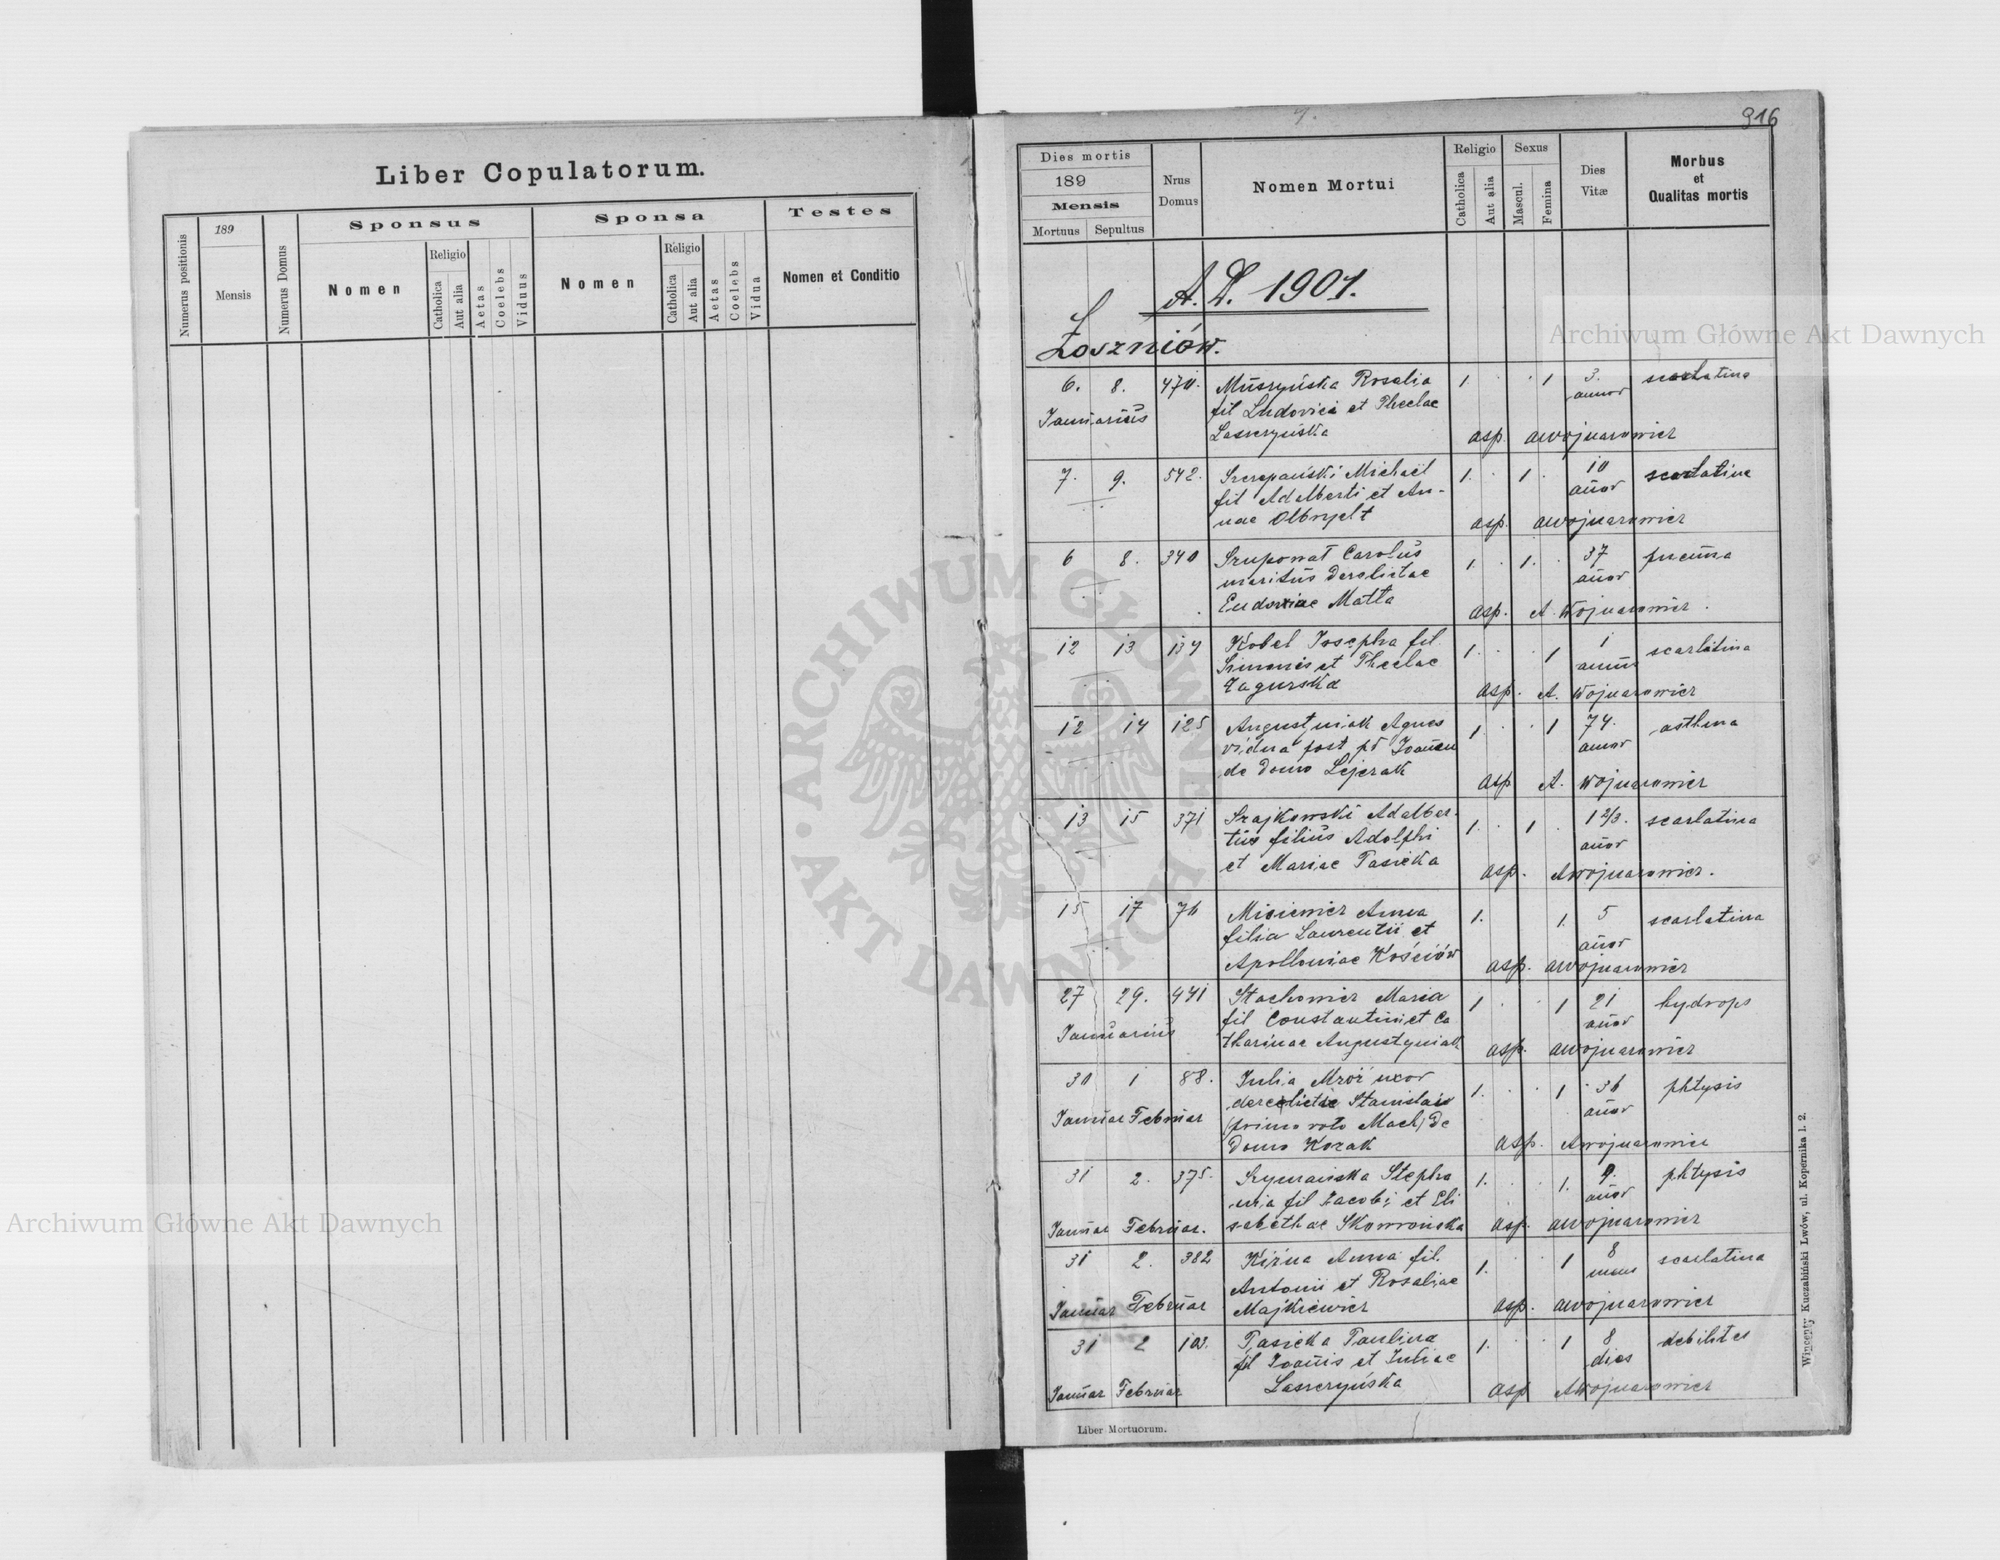 Liber Copulatorum.
Numerus positionis
189
Mensis
Numerus Domus
Sponsus
Nomen
Religio
Catholica
Aut alia
Aetas
Coelebs
Viduus
Sponsa
Nomen
Religio
Catholica
Aut alia
Aetas
Coelebs
Vidua
Testes
Nomen et Conditio
7.
916
Dies mortis
189
Mensis
Mortuus Sepultus
Nrus
Domus
Nomen Mortui
Religio
Catholica
Aut alia
Sexus
Mascul.
Femina
Dies
Vitæ
Morbus
et
Qualitas mortis
A. D. 1901.
Łoszniów.
6. 8. 470. Rosalia 1. 1 3. scarlatina
Januarius fil Ludovici et Theclae annor
Laszczyńska asp. awojnarowicz
7. 9. 542. Szczepański Michaël 1. 1 10 scarlatina
fil Adalberti et An- añor
nae Olbrycht asp. awojnarowicz
6 8. 340 Szuponat Carolus 1. 1. 37
maritus derelictae añor
Eudoxiae Matła asp. A. Wojnarowicz.
12 13 Kobel Josepha fil 1. 1 1 scarlatina
Simonis et Theclae annus
Zagurska asp. A. Wojnarowicz
12 14 125 Augustyniak Agnes 1. 1 74. asthma
vidua post Joañem annor
de domo Lejczak asp A. Wojnarowicz
13 15 371 Szajkowski Adalber- 1. 1 1 2/3. scarlatina
tus filius Adolphi añor
et Mariae Pasieka asp. Awojnarowicz.
15 17 76 Misiewicz Anna 1. 1. 5 scarlatina
filia Laurentii et añor
Apolloniae Kościów asp. awojnarowicz
27 29. 441 Stachowicz Maria 1. 1 21 hydrops
Januarius fil Constantini et Ca añor
tharinae Augustyniak asp. awojnarowicz
30 1 88. Julia Mróz uxor 1. 1 36 phtysis
Januar Februar derelicta Stanislai añor
(primo voto Mach) de
domo Kozak asp. Awojnarowicz
31 2. 375. Szymańska Stepha 1. 1. 9. phtysis
nia fil Jacobi et Eli añor
Januar Februar. sabethae Skowrońska asp. awojnarowicz
31 2. 382 Anna fil. 1. 1 8 scarlatina
Antonii et Rosaliae mens
Januar Februar Majkiewicz asp. awojnarowicz
31 2 Pasieka Paulina 1. 1 8 debilites
fil Joañis et Juliae dies
Januar Februar Laszczyńska asp Awojnarowicz
Liber Mortuorum.
Wincenty Kuczabiński Lwów, ul. Kopernika l. 2.
Archiwum Główne Akt Dawnych
Archiwum Główne Akt Dawnych
ARCHIWUM GŁÓWNE AKT DAWNYCH